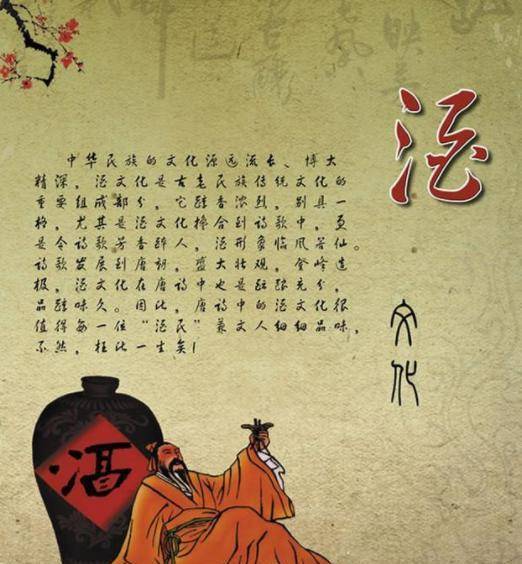 酒
文化
中华民族的文化源远流长、博大
精深,酒文化是古老民族传统文化的
重要组成部分,它醇香浓烈,别具一
格,尤其是酒文化糅合到诗歌中,更
是令诗歌芳香醉人,酒形象临风若仙。
诗歌发展到唐朝,盛大壮观,登峰造
极,酒文化在唐诗中也是酝酿充分,
品醇味久。因此,唐诗中的酒文化很
值得每一位“酒民”兼文人细细品味,
不然,枉此一生矣!
酒